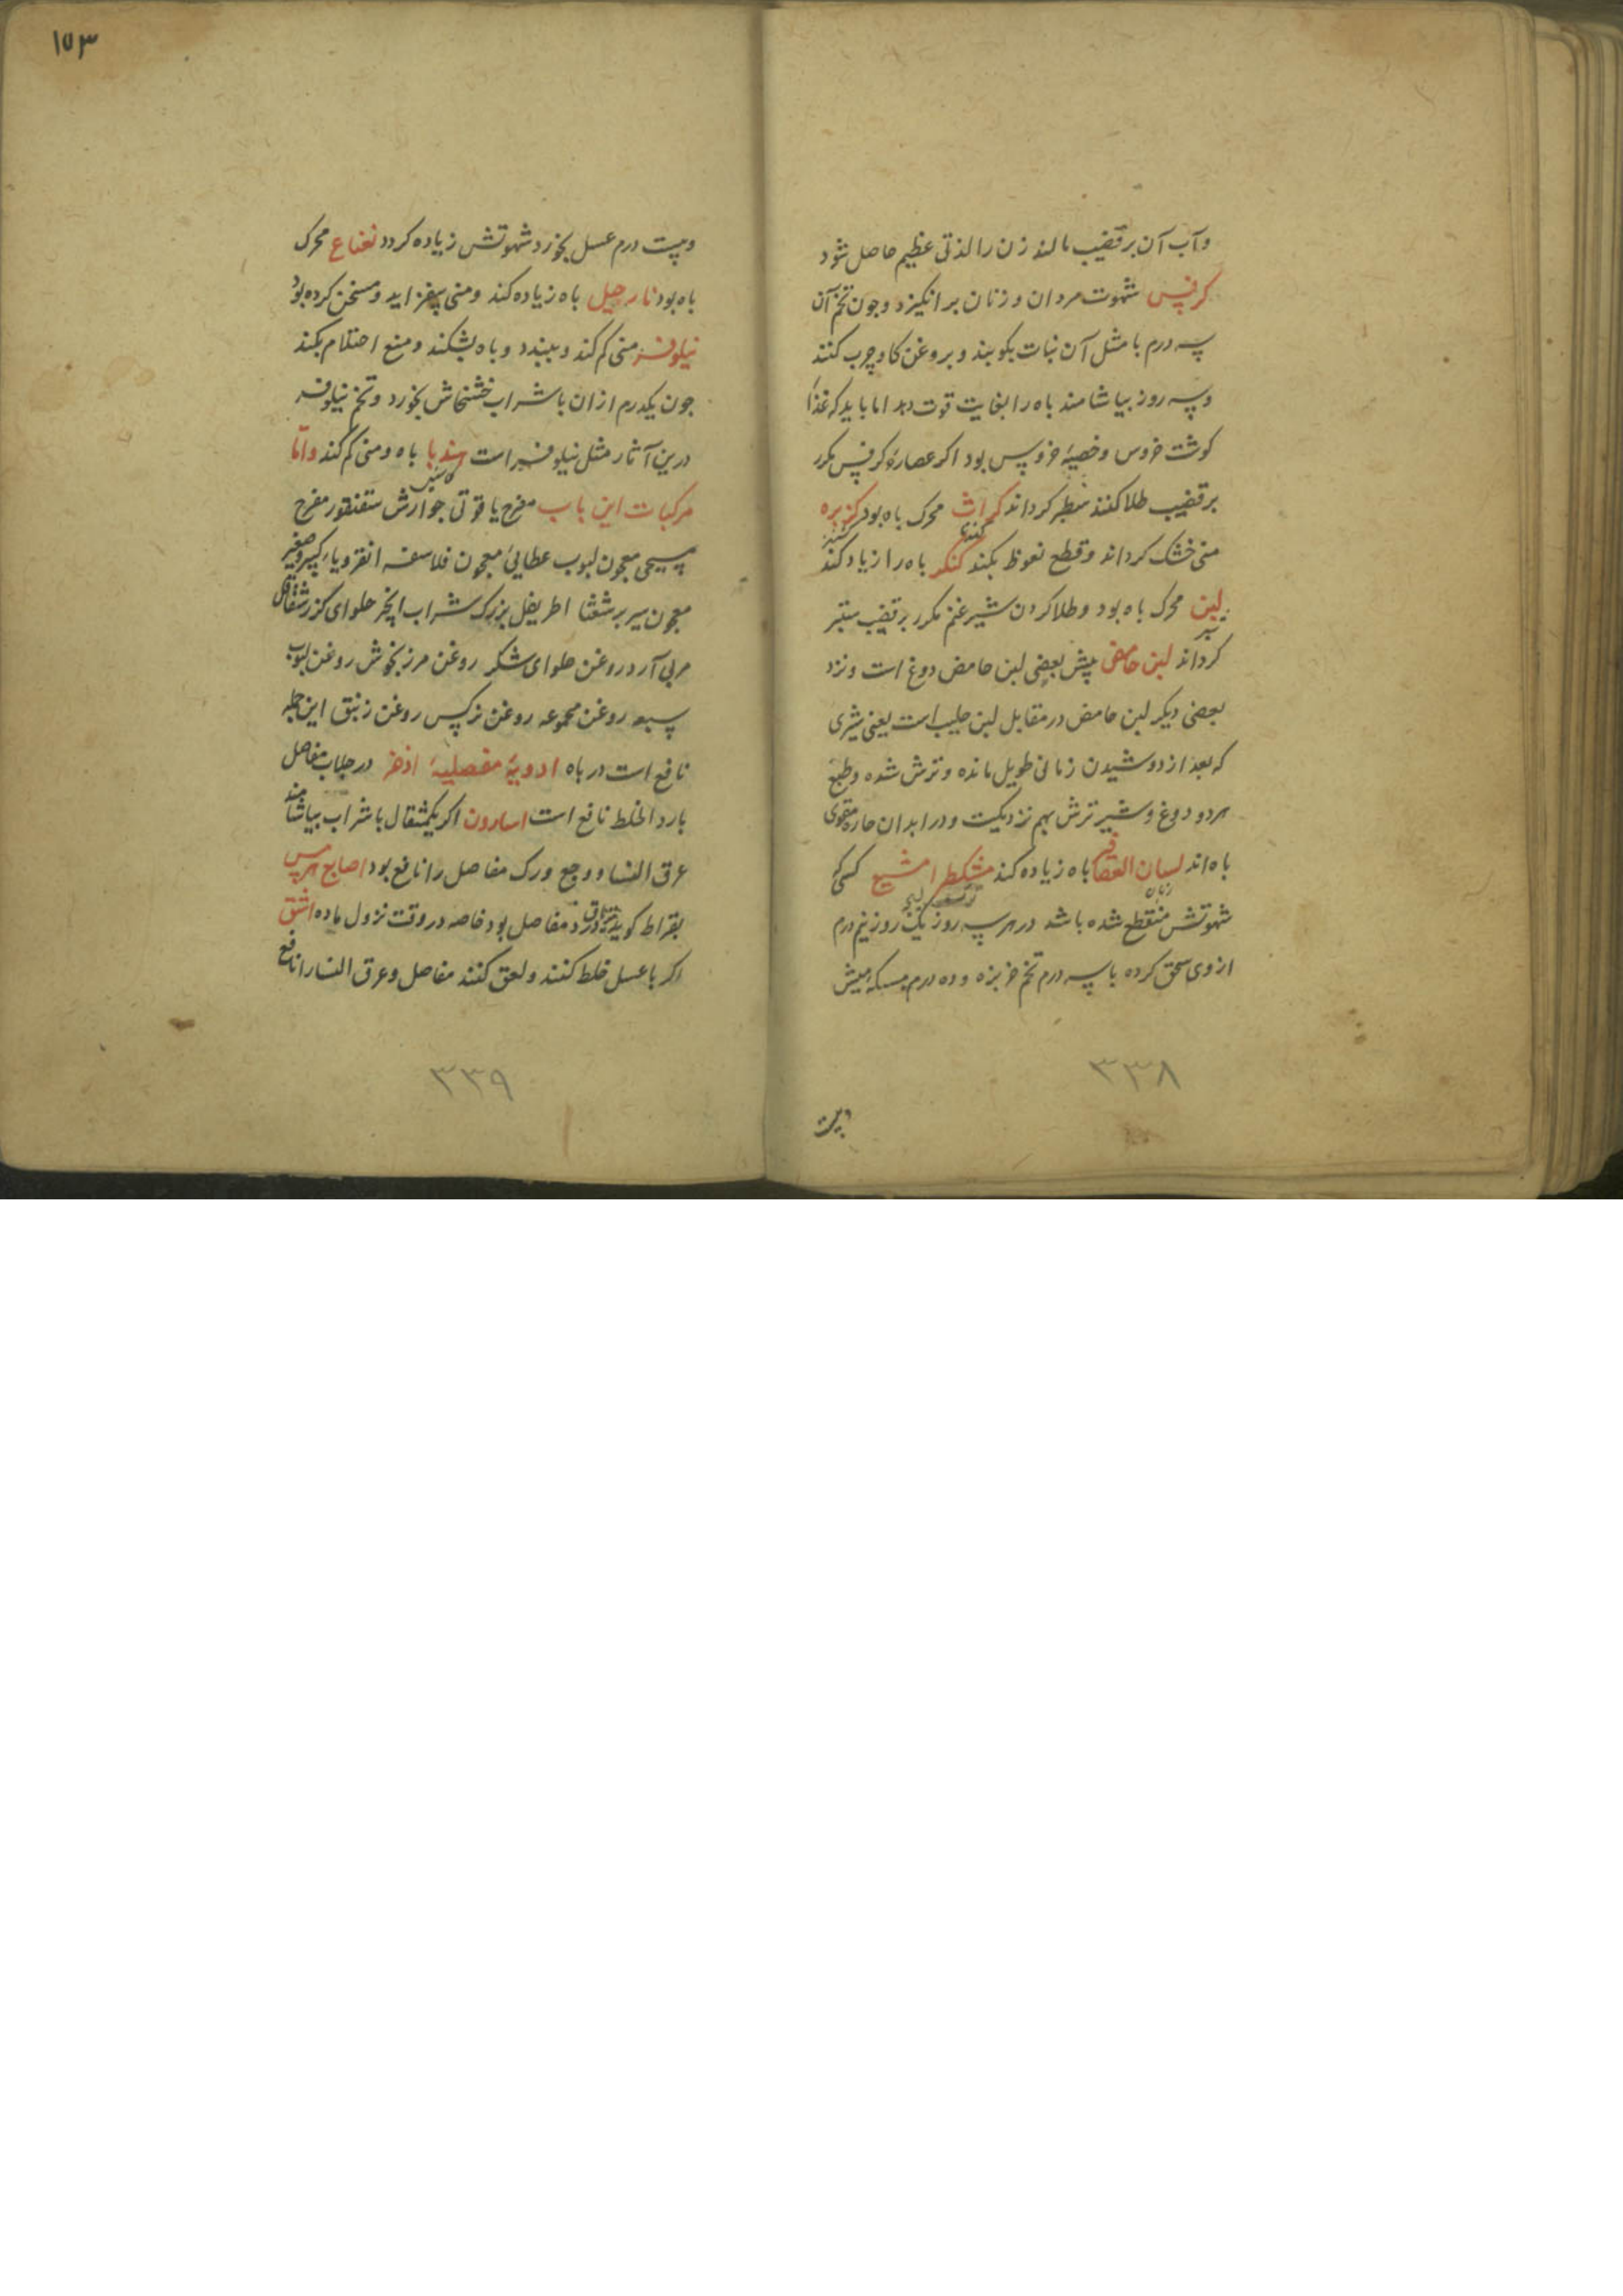 وآب آن بر قضیب مالند زن را لذتی عظیم حاصل شود
کرفس شهوت مردان و زنان برانکیزد وجون تخم آن
سه درم با مثل آن نبات بکوبند و بروغن کاو چرب کنند
وسه روز بیاشامند باه را بغایت قوت دهد اما باید که غذا
کوشت خروس وخصیهٔ خروس بود اکر عصارهٔ کرفس مکرر
برقضیب طلا کنند سطبر کرداند کراث محرک باه بود کزبره
کندنا
کشنیز
منی خشک کرداند وقطع نعوظ بکند کنکر باه را زیاد کند
لبن محرک باه بود وطلا کردن شیر غنم مکرر بر قضیب ستبر
شیر
کرداند لبن حامض پیش بعضی لبن حامض دوغ است ونزد
بعضی دیکر لبن حامض در مقابل لبن حلیب است یعنی شیری
که بعد از دوشیدن زمانی طویل مانده وترش شده وطبع
هردو دوغ وشیر ترش بهم نزدیکست ودر ابدان حاره مقوی
باه اند لسان العصافیر باه زیاده کند مشکطرامشیع کسی که
زبان
شهوتش منقطع شده باشد در هر سه روز یک روز نیم درم
ازوی سحق کرده با سه درم تخم خربزه و ده درم مسکه میش
٣٣٨
وبیست
١٥٣
وبیست درم عسل بخورد شهوتش زیاده کردد نعناع محرک
باه بود نارجیل باه زیاده کند ومنی بیفزاید ومسخن کرده بود
نیلوفر منی کم کند وببندد وباه بشکند ومنع احتلام بکند
جون یکدرم ازان با شراب خشخاش بخورد وتخم نیلوفر
درین آثار مثل نیلوفر است هندبا باه ومنی کم کند واما
کاسنی
مرکبات این باب مفرح یاقوتی جوارش سقنقور مفرح
مسیحی معجون لبوب عطایی معجون فلاسفه انقرویاء کبیر وصغیر
معجون سیر برشعثا اطریفل بزرک شراب انجیر حلوای کزر شقاقل
مربی آرد روغن حلوای شکر روغن مرزنجوش روغن لبوب
سبعه روغن مجموعه روغن نرکس روغن زنبق این جمله
نافع است در باه ادویهٔ مفصلیهٔ اذخر در جلاب مفاصل
بارد الخلط نافع است اسارون اکر یکمثقال با شراب بیاشامند
عرق النسا ووجع ورک مفاصل را نافع بود اصابع هرمس
بقراط کوید تریاق درد مفاصل بود خاصه در وقت نزول ماده اشق
اکر با عسل خلط کنند ولعق کنند مفاصل وعرق النسا را نافع
٣٣٩